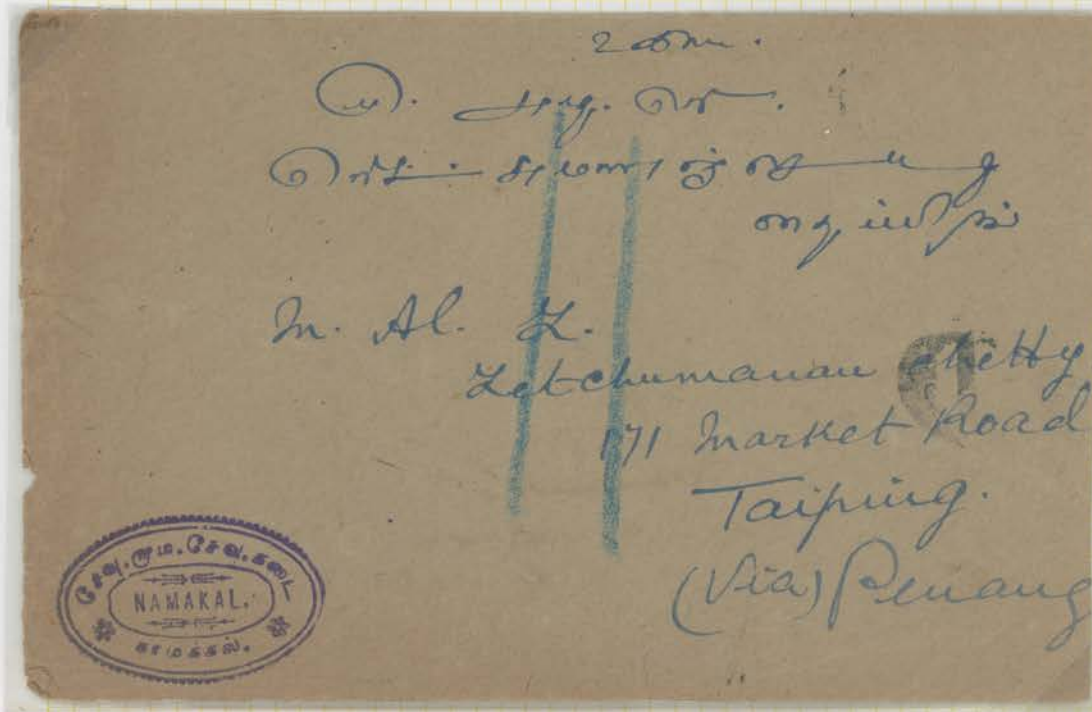 உ
லெட்சுமணஞ்செட்டி
தைப்பிங்
M. Al. L.
Letchumanan Chetty
171 Market Road
Taiping.
(Via) Penang
சேவு.ரூம.சேவ.கடை
NAMAKAL.
நாமக்கல்.